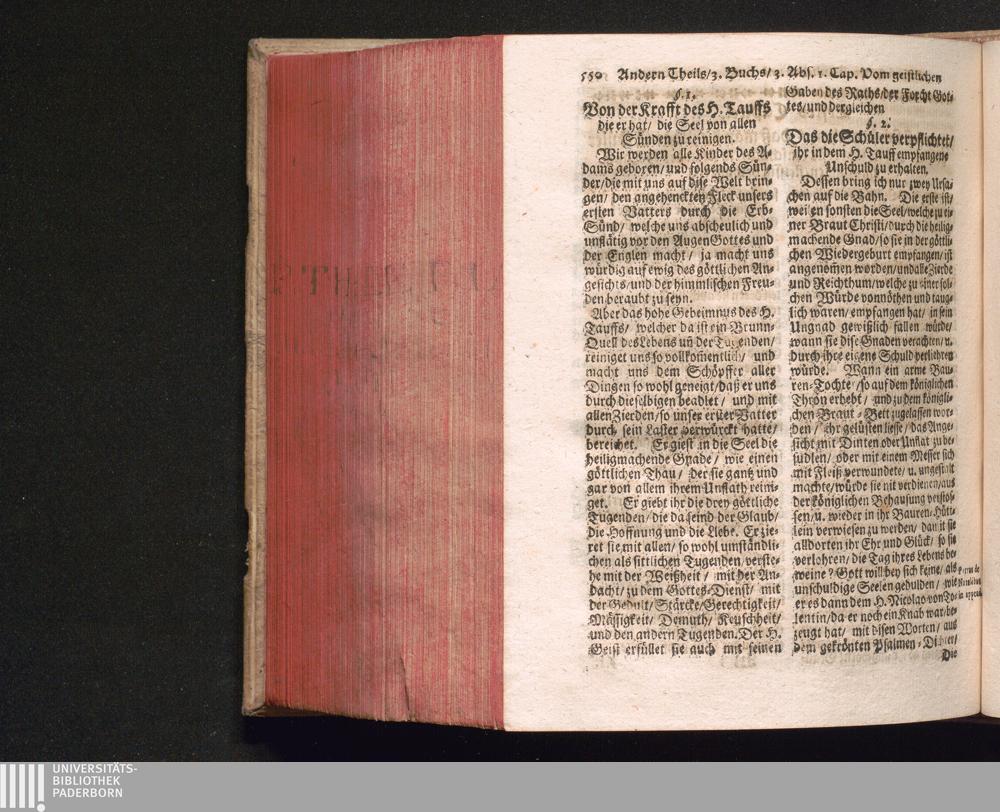 550 Andern Theils/3. Buchs/ 3. Abs. 1. Cap. Vom geistlichen
§. 1.
Von der Krafft des H. Tauffs
die er hat/ die Seel von allen
Sünden zu reinigen.
Wir werden alle Kinder des A-
dams geboren/ und folgends Sün-
der/ die mit uns auf dise Welt brin-
gen/ den angehenckten Fleck unsers
ersten Vatters durch die Erb-
Sünd/ welche uns abscheulich und
unflätig vor den Augen Gottes und
der Englen macht/ ja macht uns
würdig auf ewig des göttlichen An-
gesichts/ und der himmlischen Freu-
den beraubt zu seyn.
Aber das hohe Geheimnus des H.
Tauffs/ welcher da ist ein Brunn-
Quell des Lebens uñ der Tugenden/
reiniget uns so vollkom̃entlich/ und
macht uns dem Schöpffer aller
Dingen so wohl geneigt/ daß er uns
durch dieselbigen beadlet/ und mit
allen Zierden/ so unser erster Vatter
durch sein Laster verwürckt hatte/
bereichet. Er giest in die Seel die
heiligmachende Gnade/ wie einen
göttlichen Thau/ der sie gantz und
gar von allem ihrem Unflath reini-
get. Er giebt ihr die drey göttliche
Tugenden/ die da seind der Glaub/
die Hoffnung und die Liebe. Er zie-
ret sie mit allen/ so wohl umständli-
chen als sittlichen Tugenden/ verste-
he mit der Weißheit/ mit her An-
dacht/ zu dem Gottes-Dienst/ mit
der Gedult/ Stärcke/ Gerechtigkeit/
Mässigkeit/ Demuth/ Keuschheit/
und den andern Tugenden. Der H.
Geist erfüllet sie auch mit seinen
Gaben des Raths/ der Forcht Got-
tes/ und dergleichen
§. 2.
Das die Schüler verpflichtet/
ihr in dem H. Tauff empfangene
Unschuld zu erhalten.
Dessen bring ich nur zwey Ursa-
chen auf die Bahn. Die erste ist/
weilen sonsten die Seel/ welche zu ei-
ner Braut Christi/ durch die heilig-
machende Gnad/ so sie in der göttli-
chen Wiedergeburt empfangen/ ist
angenom̃en worden/ und alle Zierde
und Reichthum/ welche zu einer sol-
chen Würde vonnöthen und taug-
lich waren/ empfangen hat/ in sein
Ungnad gewißlich fallen würde/
wann sie dise Gnaden verachten/ u.
durch ihre eigene Schuld verliehren
würde. Wann ein arme Bau-
ren-Tochter/ so auf dem königlichen
Thron erhebt/ und zu dem königli-
chen Braut-Bett zugelassen wor-
den/ ihr gelüsten liesse/ das Ange-
sicht mit Dinten oder Unflat zu be-
sudlen/ oder mit einem Messer sich
mit Fleiß verwundete/ u. ungestalt
machte/ würde sie nit verdienen/ aus
der königlichen Behausung verstos-
sen/ u. wieder in ihr Bauren-Hütt-
lein verwiesen zu werden/ damit sie
alldorten ihr Ehr und Glück/ so sie
verlohren/ die Tag ihres Lebens be-
weine? Gott will bey sich keine/ als
unschuldige Seelen gedulden/ wie
er es dann dem H. Nicolao von To-
lentin/ da er noch ein Knab war/ be-
zeugt hat/ mit disen Worten/ aus
dem gekrönten Psalmen-Dichter/
Die
UNIVERSITÄTS-
BIBLIOTHEK
PADERBORN